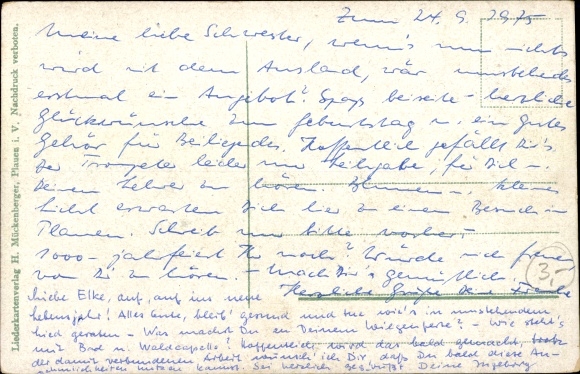 24. 9. 1975
Meine liebe Schwester, wenn's nun nichts
wird mit dem Ausland, wär umstehendes
erstmal ein Angebot? Spass beiseite - herzliche
Glückwünsche zum Geburtstag u. ein gutes
Gehör für Beiliegendes. Hoffentlich gefällt Dir's.
Der Trompete leider nur Teilgabe, für Dich -
Deinen Lehrer zu hören. Blumen u. kleines
Licht erwarten Dich hier zu einem Besuch in
Plauen. Schreib nur bitte vorher.
1000-jahrfeiert Ihr noch? Würde mich freuen
von Dir zu hören. - Mach Dir's gemütlich.
Herzliche Grüße Deine
Liebe Elke, auf, auf ins neue
Lebensjahr! Alles Gute, bleib' gesund und tue wie's in umstehendem
Lied geraten - Was machst Du an Deinem Wiegenfeste? - Wie steht's
mit Bad u. Waldcapelle? Hoffentlich wird das bald gemacht,
der damit verbundenen Arbeit wünsch' ich Dir, daß Du bald diese An-
nehmlichkeiten nutzen kannst. Sei herzlich gegrüßt Deine Ingeborg
3-
Liederkartenverlag H. Mückenberger, Plauen i. V. Nachdruck verboten.